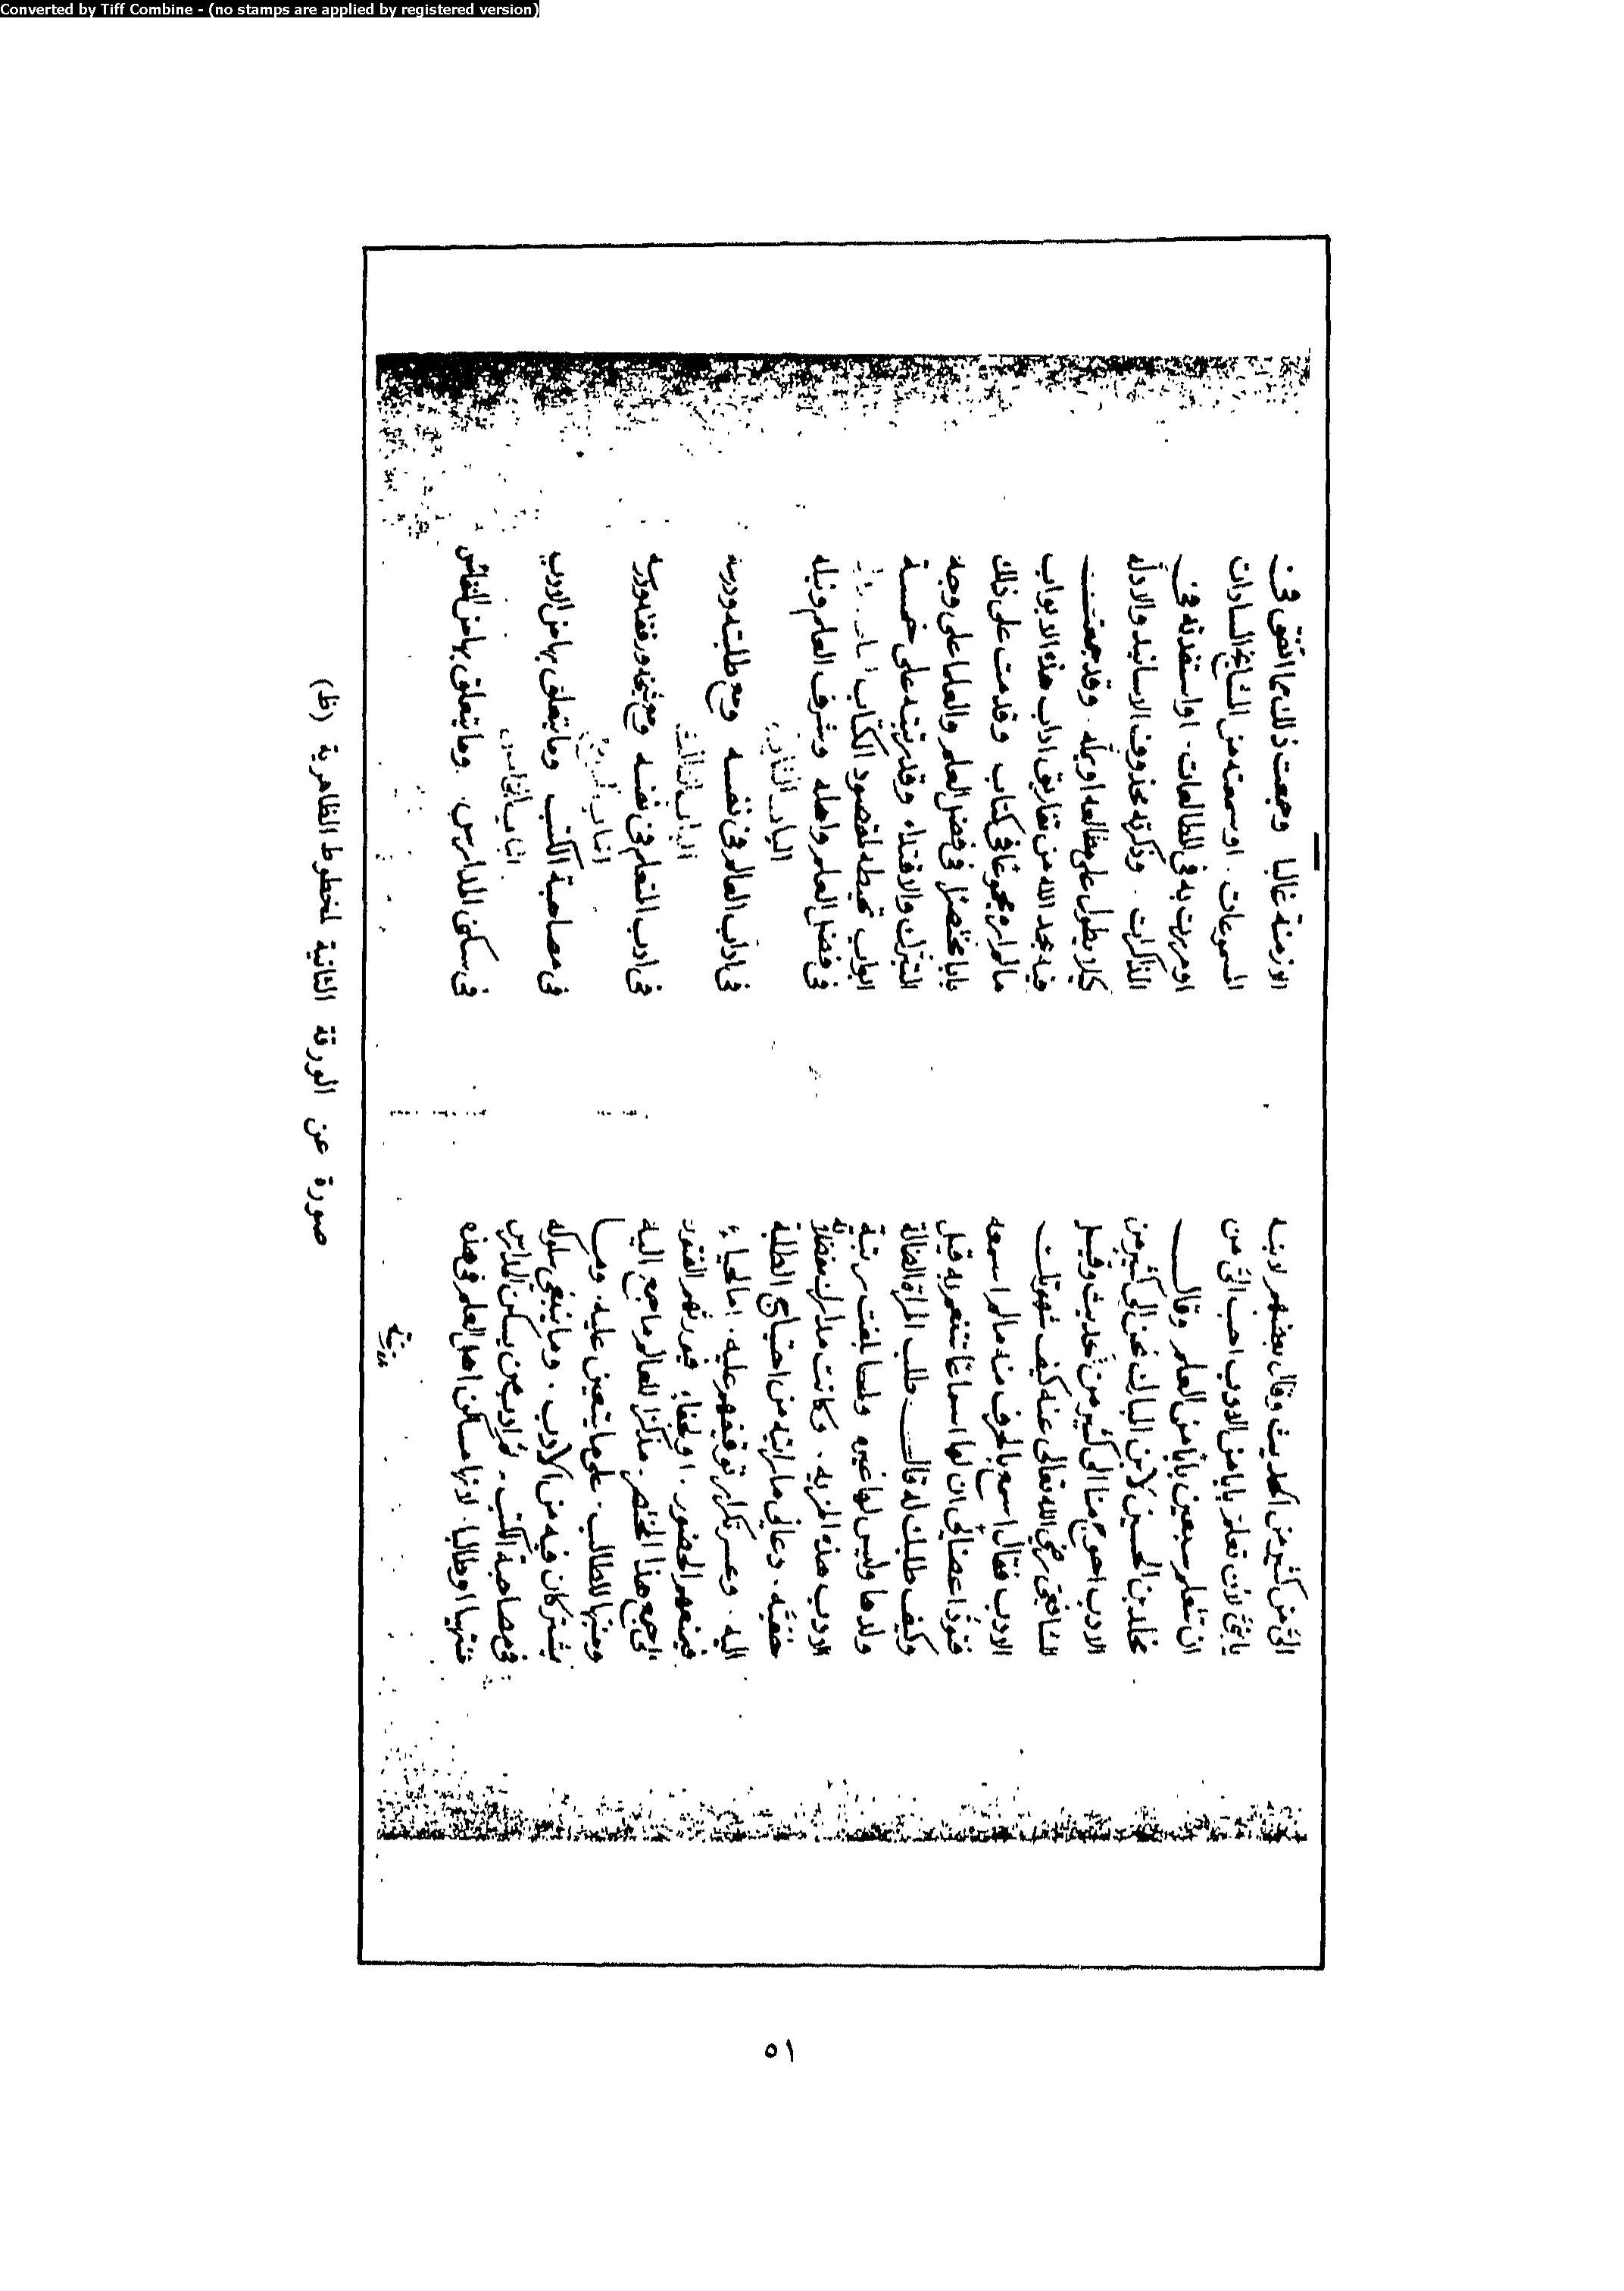 Converted by Tiff Combine - (no stamps are applied by registered version)
الىَّ من كثير من الحديث وقال بعضهم لابنه
يا بنىَّ لان تعلم بابا من الادب احب الىَّ من
ان تتعلم سبعين بابًا من العلم وقال
مخلد بن الحسين لابن المبارك نحن الى كثير من
الادب احوج منا الى كثير من الحديث وقيل
للشافعي رضي الله تعالى عنه كيف شهوتك
للادب فقال اسمع بالحرف منه مالم اسمعه
فتود اعضائي ان لها اسماعًا تتنعم به قيل
وكيف طلبك له قال طلب المرأة المضلة
ولدها وليس لها غيره ولما بلغت رتبة
الادب هذه المزيه. وكانت مدارك مفصلاته
خفيّه. دعاني ما رايته من احتياج الطلبة
اليه. وعسر تكرار توقيفهم عليه. اما لحياءٍ
فيمنعهم الحضور. او لجفاءٍ فيورثهم النفور
الى جمع هذا المختصر. مذكرًا للعالم ما جمع اليه
ومنبها للطالب. على ما يتعين عليه. وما
يشتركان فيه من الادب. وما ينبغي سلوكه
في مصاحبة الكتب. ثم ادب من يسكن المدارس
منتهيا او طالبا. لانها مساكن اهل العلم في هذه
الازمنة غالبا وجمعت ذلك مما اتفق في
المسموعات. او سمعته من المشايخ السادات
او مررت به في المطالعات. او استفدته في
المذاكرات. وذكرته محذوف الاسانيد والادلّه
كيلا يطول على مطالعه او يملّه. وقد جمعت
فيه بحمد الله من تفاريق اداب هذه الابواب
مالم اره مجموعًا في كتاب وقدمت على ذلك
بابا مختصرًا في فضل العلم والعلما على وجه
التبرّك والاقتداء وقد رتبته على خمسة
ابواب تحيط بمقصود الكتاب
في فضل العلم واهله وشرف العلم ونبله
الباب الثاني
في اداب العالم في نفسه ومع طلبته ودرسه
الباب الثالث
في ادب المتعلم في نفسه ومع شيخه ورفقته ودرسه
الباب الرابع
في مصاحبة الكتب وما يتعلق بها من الادب
الباب الخامس
في سكنى المدارس. وما يتعلق بها من النفائس
صورة عن الورقة الثانية لمخطوط الظاهرية (ظ)
٥١